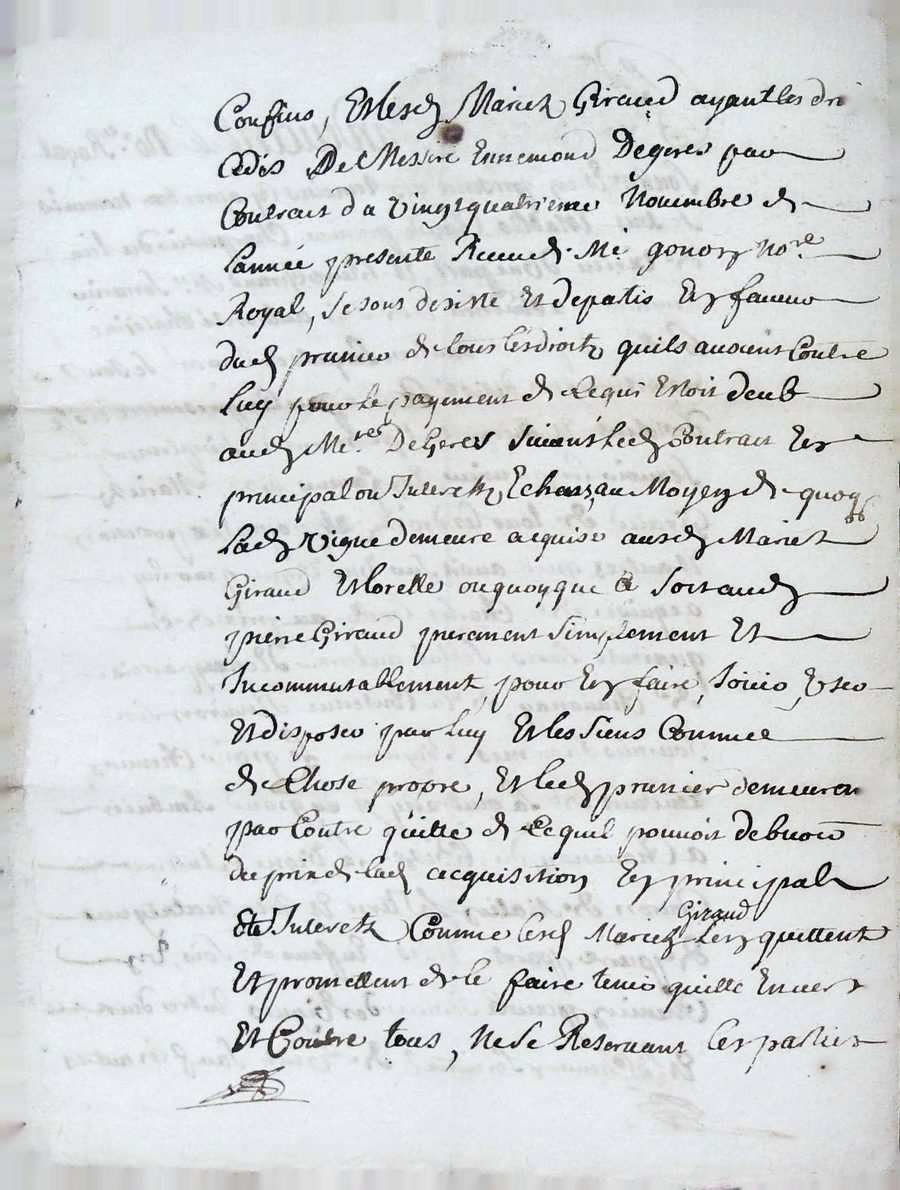 Confins, Et lesd Mariez Giraud ayant les dr
Cedés De Messire Ennemond Degeres par
Contrait du Vingt quatrieme Novembre de
Lannée presente Receu de Me gonon no.re
Royal, se sont desisté Et departis En faveur
dud prunier de tous les droitz quils avoient Contre
luy pour le payement de ce qui Estoit deub
aud Me.re DeGeres suivant led Contrait En
principal ou Interetz, Au Moyen de quoy
Lad Vigne demeure acquise ausd Mariez
Giraud Et ou quoy que ce Soit aud
pierre Giraud purement Simplement Et
Incommutablement, pour En faire, Jouir, User
Et disposer par luy Et les Siens Comme
de Chose propre, Et led prunier demeurera
par Contre quitte de Ce quil pouvoit debvoir
du prix de lad acquisition En principal
Et Interetz Comme lesd Mariez Giraud Len quittent
Et promettent de le faire tenir quitte Envers
Et Contre tous, Ne Se Reservant les parties